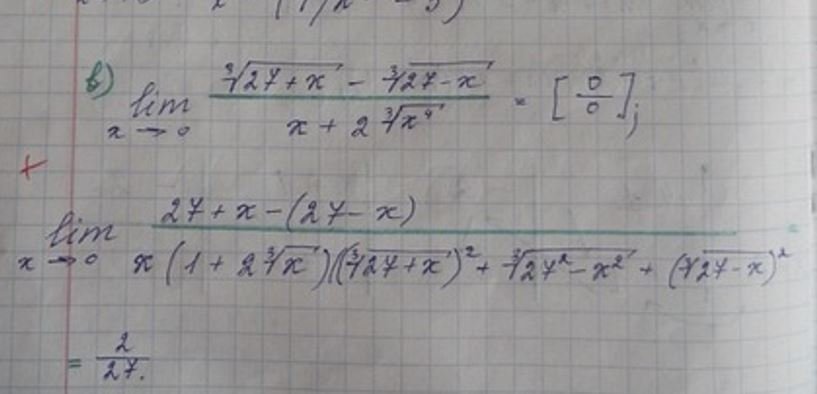 в) lim x→0 (∛(27+x) - ∛(27-x)) / (x + 2∛(x⁴)) = [0/0];
+
lim x→0 (27 + x - (27 - x)) / (x(1 + 2∛x)((∛(27+x))² + ∛(27² - x²) + (∛(27-x))²) =
= 2/27.